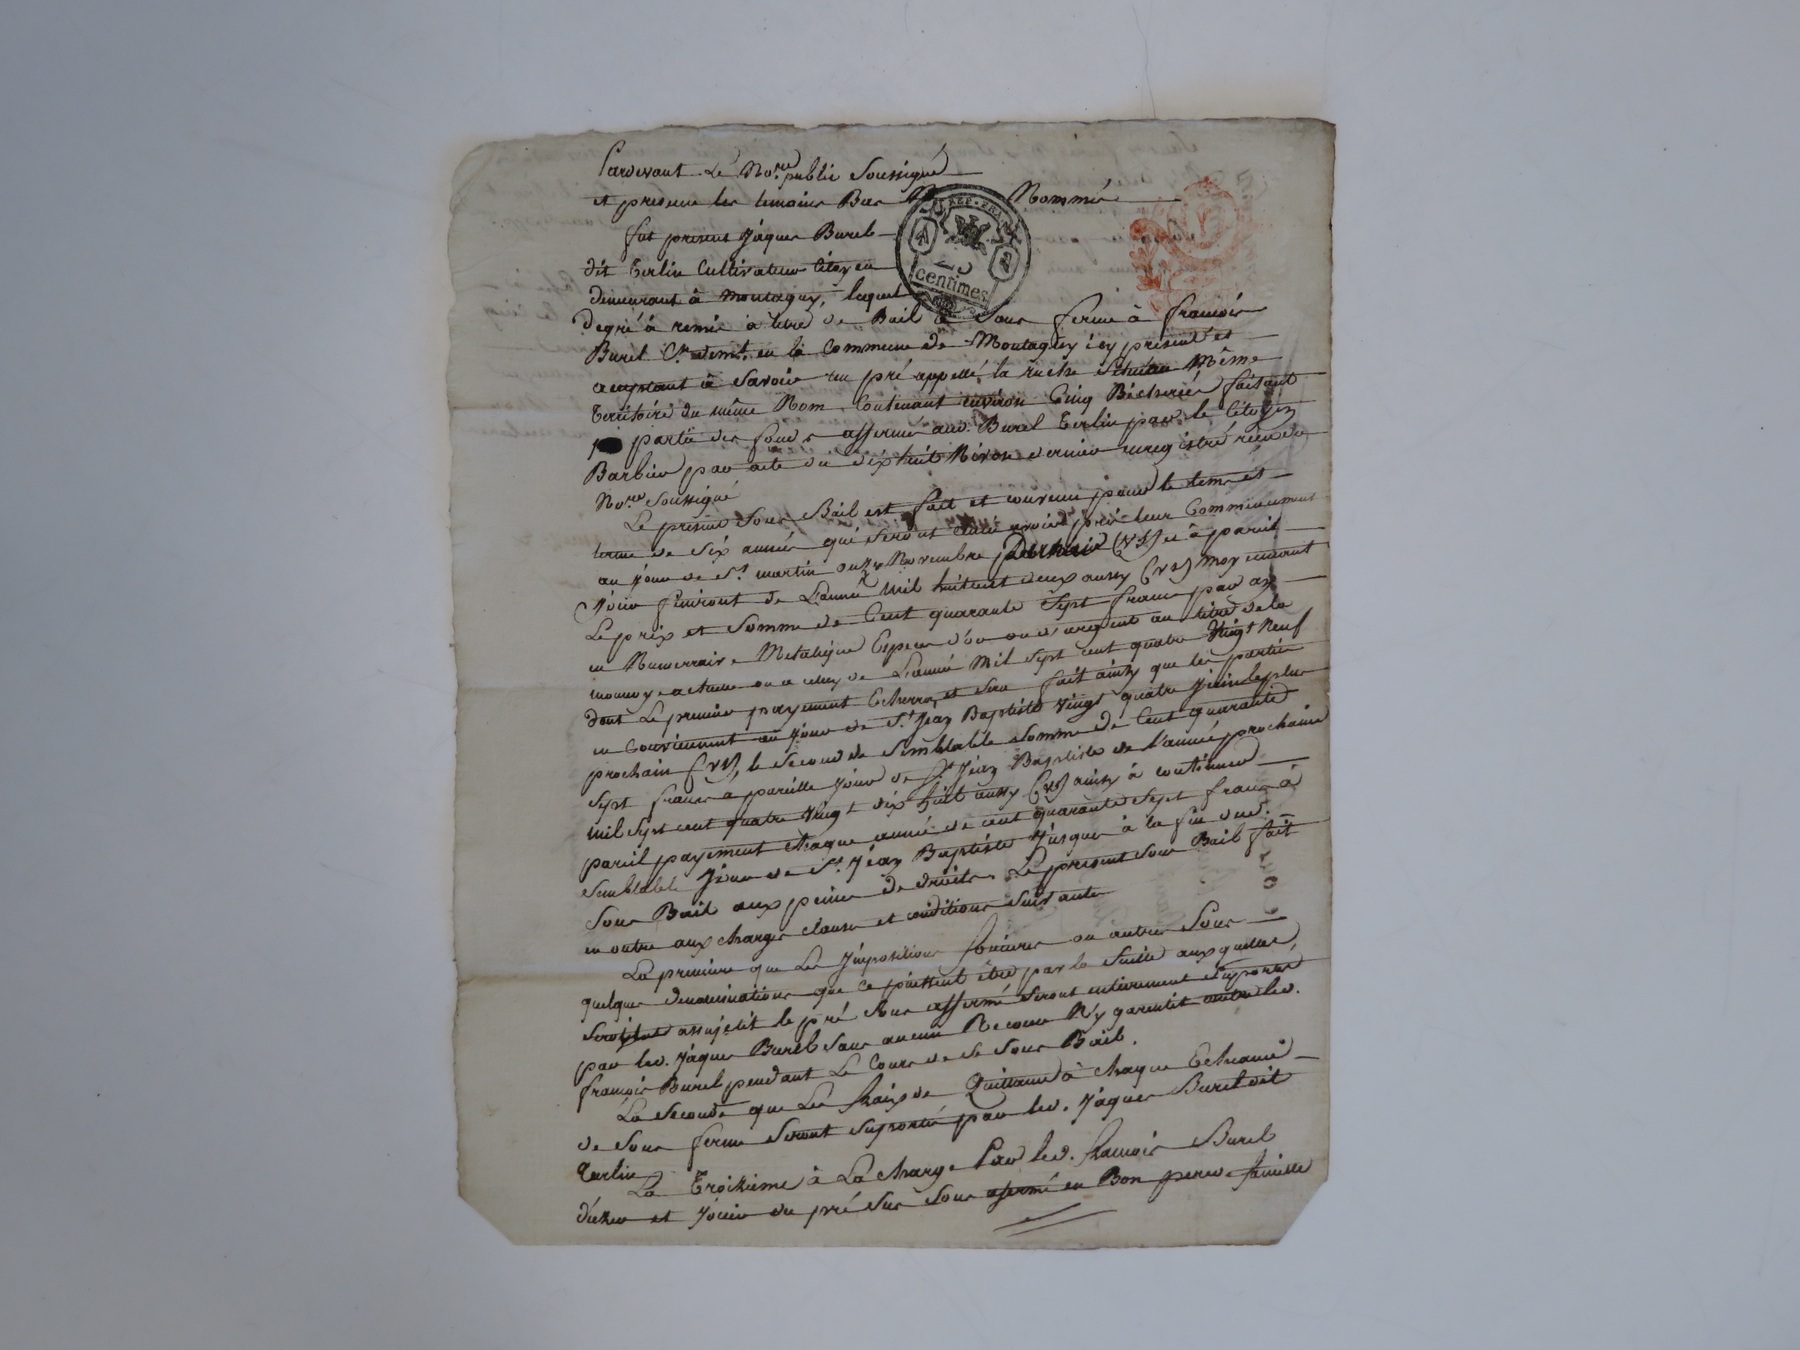 Pardevant Le No.re public Soussigné
et presence les temoins Bas Nommés
fut present Jâques Burel
dit Terlin Cultivateur Citoyen
demeurant à Montagny, lequel
REP. FRA.
A 2
25
centimes
Degré à remis à titre de Bail à Sous ferme à françois
Burel C.n demt. en la Commune de Montagny icy présent et
acceptant à Savoir un pré appellé la ruche Même
Territoire du même Nom Contenant environ Cinq Bécherées faisant
partie des fonds affermés aud. Burel Terlin par le Citoyen
Barbier par acte du dix huit Nivose dernier enregistré rieu du
No.re Soussigné
Le présent Sous Bail est fait et convenu pour le tems et
terme de six années qui seront censé avoir pris leur Commencement
au Jour de St. martin onze Novembre Dernier (VS) et à pareil
Jour finiront de L'année mil huitcent deux aussy (VS) moyennant
Le prix et Somme de Cent quarante Sept francs par an
en Numerraire Metalique Espece d'or ou d'argent au titre de la
monnoye actuelle ou a celuy de L'année Mil Sept cent quatre Vingt Neuf
dont Le premier payement Echerra et sera fait ainsy que les parties
en Conviennent au Jour de St. Jean Baptiste Vingt quatre Juin le plus
prochain (VS), le Second de Semblable Somme de Cent quarante
Sept francs à pareille Jour de St. Jean Baptiste de l'année prochaine
mil Sept cent quatre Vingt dix huit aussy (VS) ainsy à continuer
pareil payement Chaque année de cent quarante Sept francs à
Semblable Jour de St. Jean Baptiste Jusques à la fin dud.
Sous Bail aux peines de droits. Le present Sous Bail fait
en outre aux charges clauses et conditions Suivantes
La première que Les Jmpositions foncieres ou autres Sous
quelques denominations que ce puissent être par la Suitte auxquelles
assujetit le pré Sous affermé seront entierement suportés
par led. Jâques Burel Sans aucun Recours Ny garentit contre led.
françois Burel pendant Le Cours de se Sous Bail.
La Seconde que Les fraix de Quittance à Chaque Echeance
de Sous ferme Seront Suportés par led. Jâques Burel dit
Terlin
La Troisieme à La charge Par led. françois Burel
d'user et Jouir du pré Sus Sous afermé en Bon pere de famille